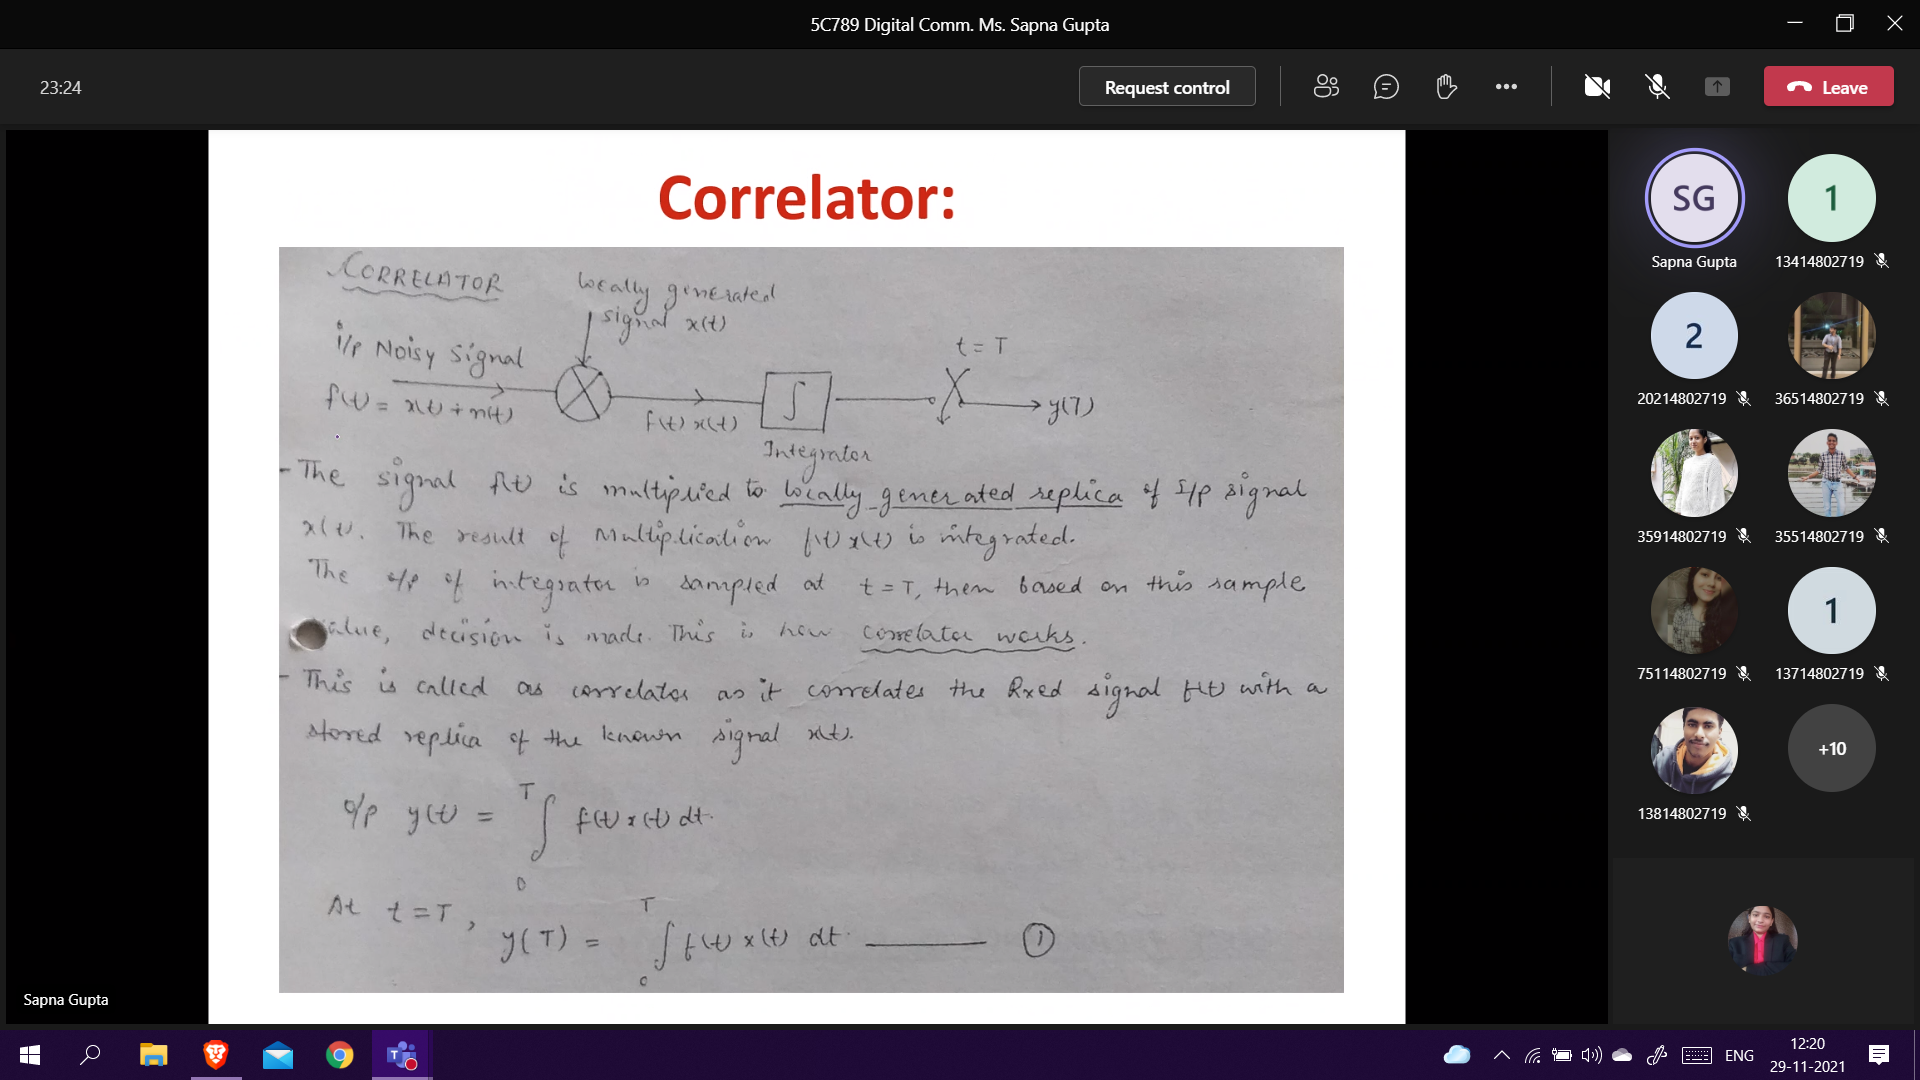 5C789 Digital Comm. Ms. Sapna Gupta
23:24
Request control
Leave
Correlator:
CORRELATOR
locally generated
signal x(t)
i/p Noisy signal
t = T
f(t) = x(t) + n(t)
f(t) x(t)
∫
y(T)
Integrator
- The signal f(t) is multiplied to locally generated replica of I/p signal
x(t). The result of multiplication f(t) x(t) is integrated.
The o/p of integrator is sampled at t = T, then based on this sample
value, decision is made. This is how correlator works.
- This is called as correlator as it correlates the Rxed signal f(t) with a
stored replica of the known signal x(t).
o/p y(t) = ∫₀ᵀ f(t) x(t) dt.
At t = T,
y(T) = ∫₀ᵀ f(t) x(t) dt. ——— ①
Sapna Gupta
SG
Sapna Gupta
1
13414802719
2
20214802719
36514802719
35914802719
35514802719
75114802719
1
13714802719
13814802719
+10
ENG
12:20
29-11-2021